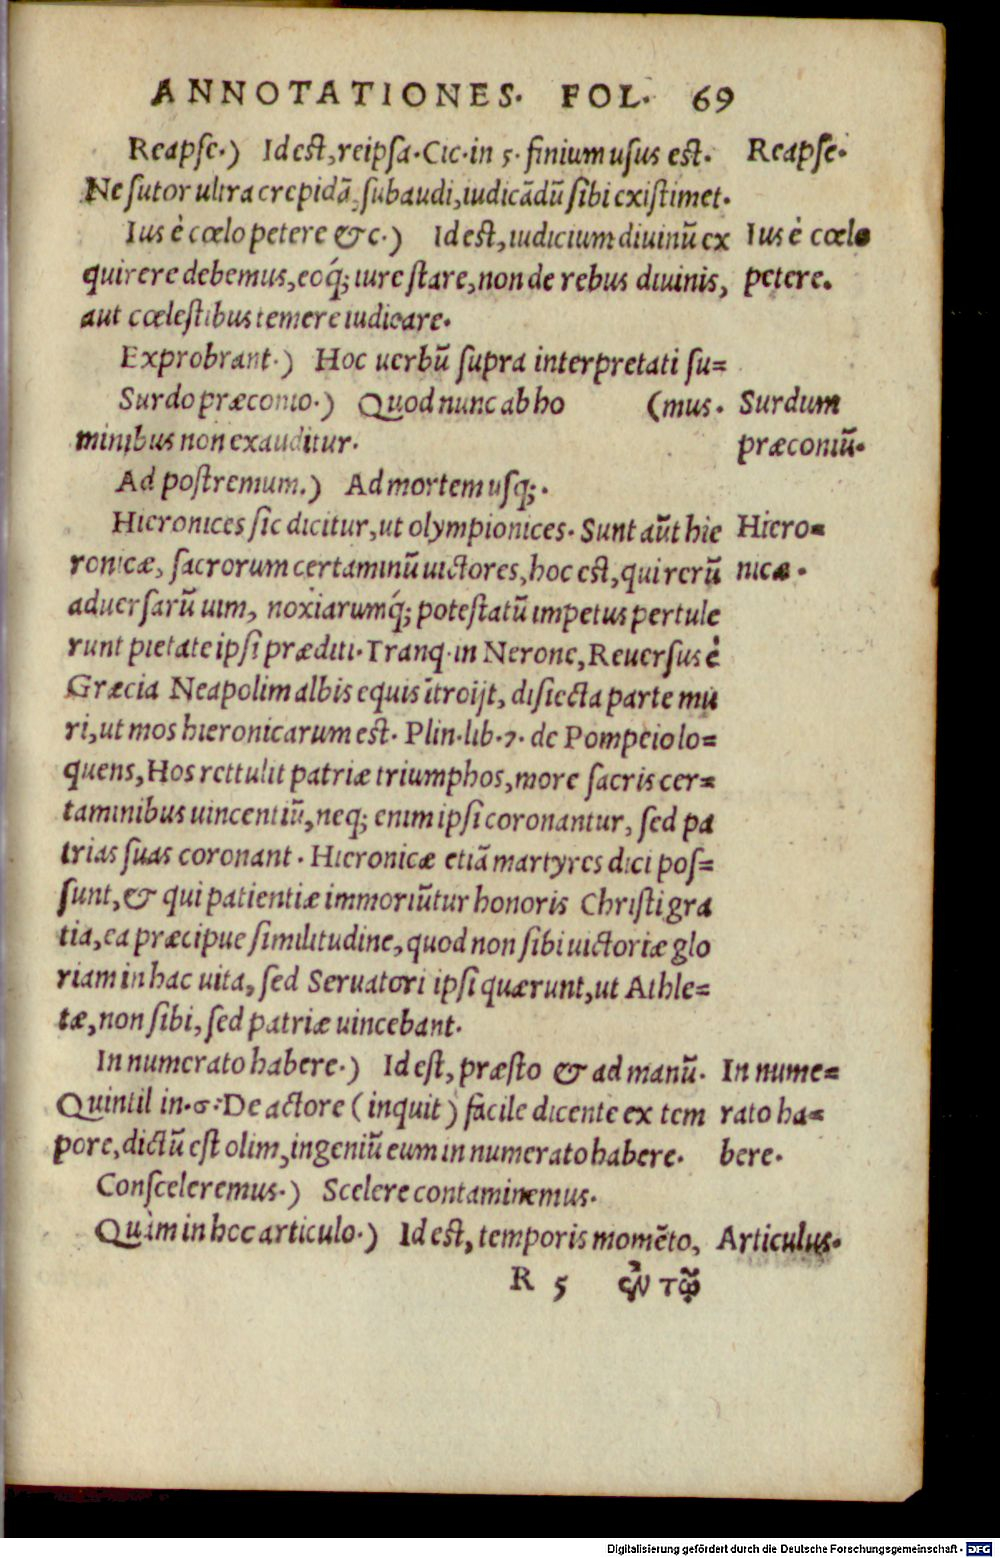 ANNOTATIONES. FOL. 69
Reapſe.) Id eſt, reipſa. Cic. in 5. finium uſus eſt. Reapſe.
Ne ſutor ultra crepidã, ſubaudi, iudicãdũ ſibi exiſtimet.
Ius è cœlo petere &c.) Id eſt, iudicium diuinũ ex Ius è cœlo
quirere debemus, eoq́; iure ſtare, non de rebus diuinis, petere.
aut cœleſtibus temere iudicare.
Exprobrant.) Hoc uerbũ ſupra interpretati ſu=
Surdo præconio.) Quod nunc ab ho (mus. Surdum
minibus non exauditur. præconiũ.
Ad poſtremum.) Ad mortem uſq;.
Hieronices ſic dicitur, ut olympionices. Sunt aũt hie Hiero=
ronicæ, ſacrorum certaminũ uictores, hoc eſt, qui rerũ nicæ.
aduerſarũ uim, noxiarumq́; poteſtatũ impetus pertule
runt pietate ipſi præditi. Tranq. in Nerone, Reuerſus è
Græcia Neapolim albis equis ĩtroijt, diſiecta parte mu
ri, ut mos hieronicarum eſt. Plin. lib. 7. de Pompeio lo=
quens, Hos rettulit patriæ triumphos, more ſacris cer=
taminibus uincentiũ, neq; enim ipſi coronantur, ſed pa
trias ſuas coronant. Hieronicæ etiã martyres dici poſ=
ſunt, & qui patientiæ immoriũtur honoris Chriſti gra
tia, ea præcipue ſimilitudine, quod non ſibi uictoriæ glo
riam in hac uita, ſed Seruatori ipſi quærunt, ut Athle=
tæ, non ſibi, ſed patriæ uincebant.
In numerato habere.) Id eſt, præſto & ad manũ. In nume=
Quintil in. 6: De actore (inquit) facile dicente ex tem rato ha=
pore, dictũ eſt olim, ingeniũ eum in numerato habere. bere.
Conſceleremus.) Scelere contaminemus.
Quàm in hoc articulo.) Id eſt, temporis momẽto, Articulus.
R 5 ἐν τῷ
Digitalisierung gefördert durch die Deutsche Forschungsgemeinschaft - DFG